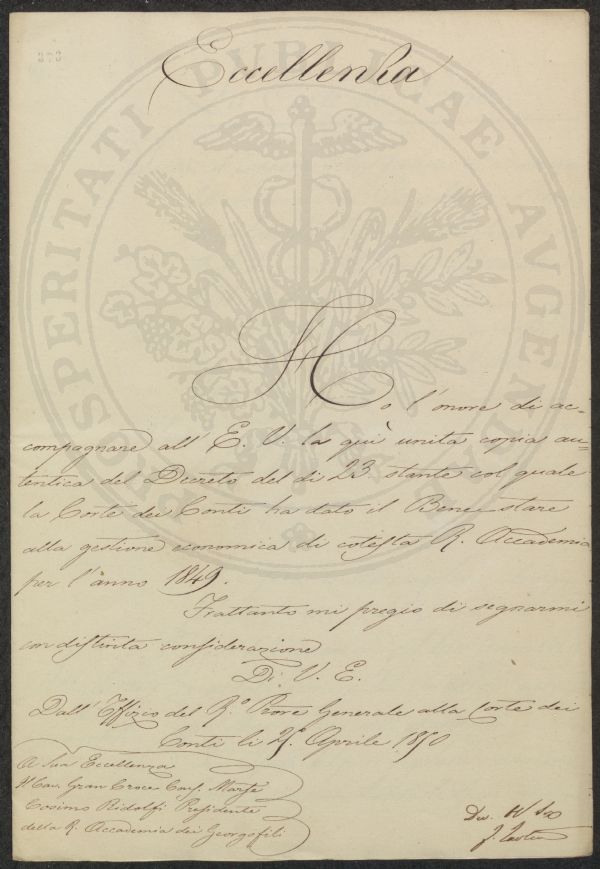 Eccellenza
PROSPERITATI PVBLICAE AVGENDAE
Ho l'onore di ac=
compagnare all' E. V. la quì unita copia au=
tentica del Decreto del dì 23 stante col quale
la Corte dei Conti ha dato il Bene-stare
alla gestione economica di cotesta R. Accademia
per l'anno 1849.
Frattanto mi pregio di segnarmi
con distinta considerazione
Di V. E.
Dall' Uffizio del R.º Proc.re Generale alla Corte dei
Conti li 25. Aprile 1850
A Sua Eccellenza
Il Cav. Gran Croce Marse
Cosimo Ridolfi Presidente
della R. Accademia dei Georgofili
Dev.